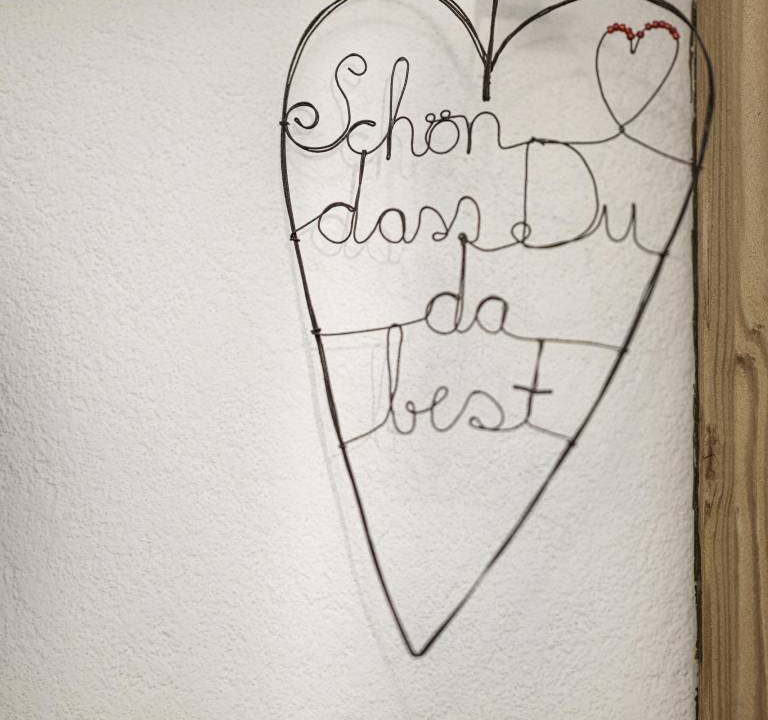 Schön
dass Du
da
best